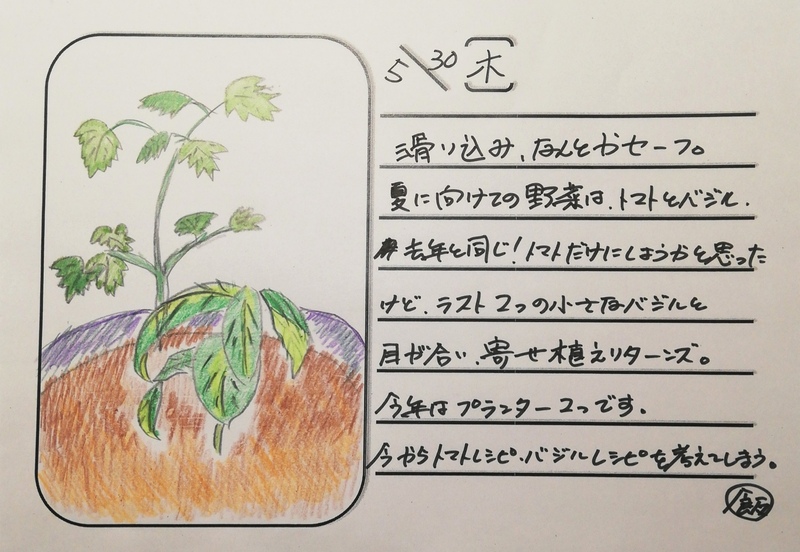 5/30 木
滑り込み、なんとかセーフ。
夏に向けての野菜は、トマトとバジル。
去年と同じ！トマトだけにしようかと思った
けど、ラスト2つの小さなバジルと
目が合い、寄せ植えリターンズ。
今年はプランター2つです。
今からトマトレシピ・バジルレシピを考えてしまう。